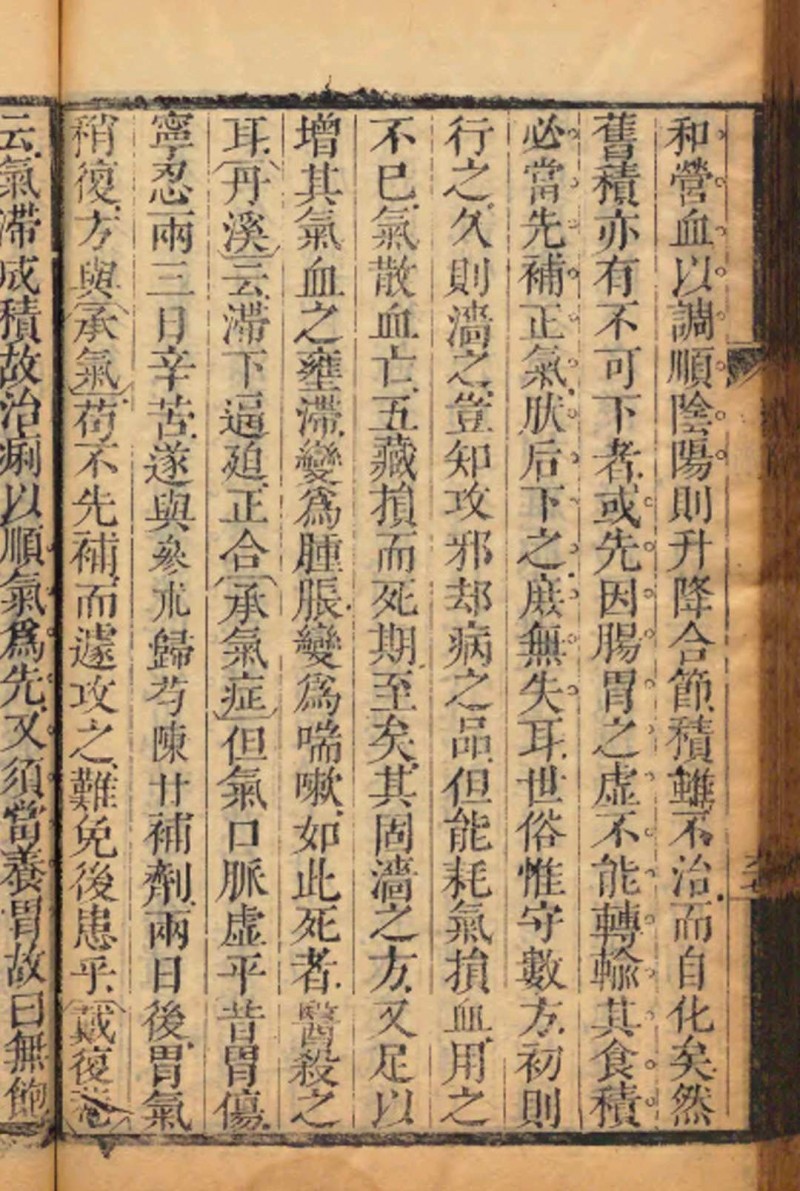 和營血以調順陰陽則升降合節積雖不治而自化矣然
舊積亦有不可下者或先因腸胃之虛不能轉輸其食積
必當先補正氣肰后下之庶無失耳世俗惟守數方初則
行之久則濇之豈知攻邪却病之品但能耗氣損血用之
不已氣散血亡五藏損而死期至矣其固濇之方又足以
增其氣血之壅滯變爲腫脹變爲喘嗽如此死者醫殺之
耳丹溪云滯下逼廹正合承氣症但氣口脈虛平昔胃傷
寧忍兩三日辛苦遂與參朮歸芍陳甘補劑兩日後胃氣
稍復方與承氣苟不先補而遽攻之難免後患乎戴復菴
云氣滯成積故治痢以順氣爲先又須當養胃故曰無飽